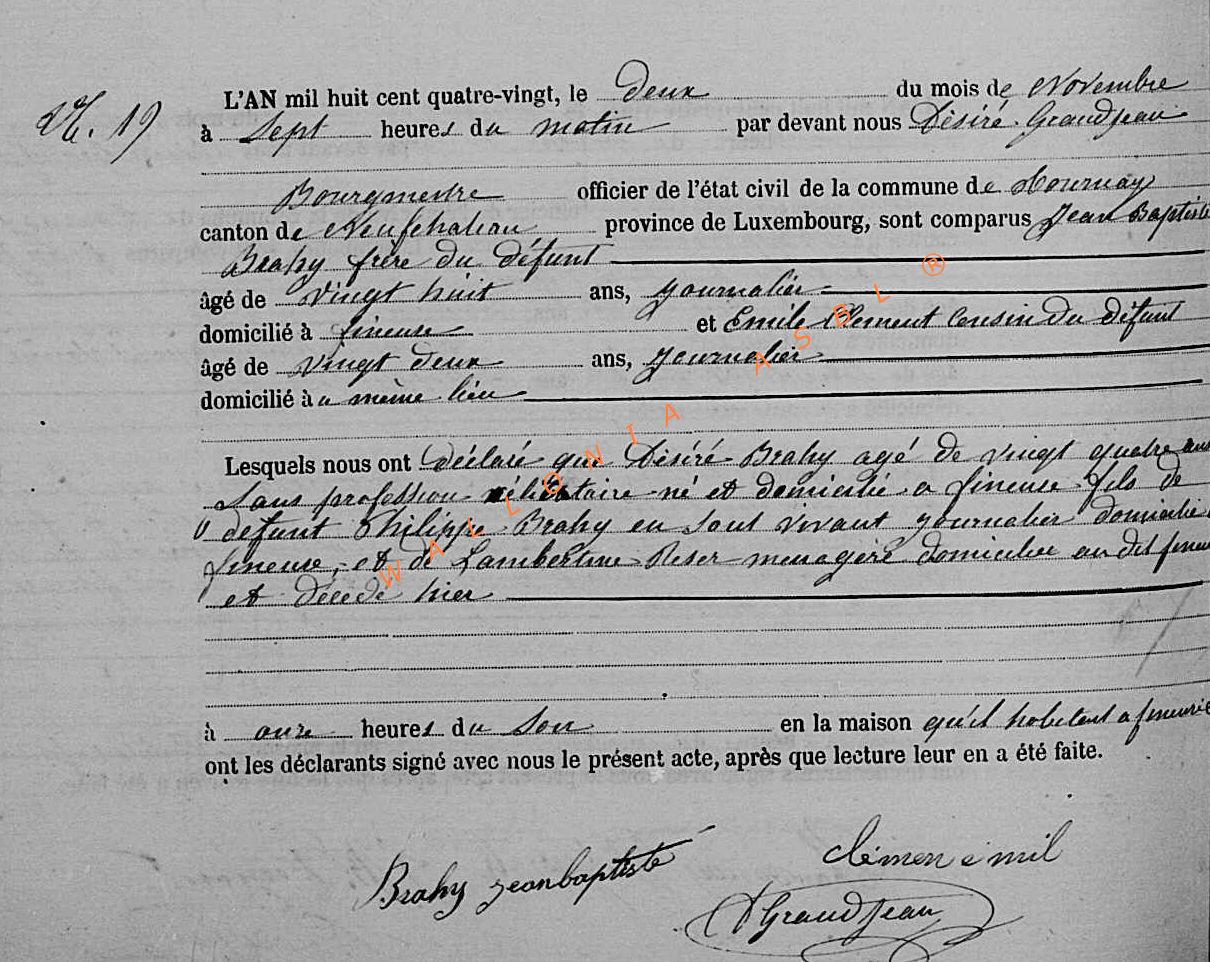 N. 19
L'AN mil huit cent quatre-vingt, le deux du mois de Novembre
à Sept heures du matin par devant nous Désiré Grandjean
Bourgmestre officier de l'état civil de la commune de Tournay
canton de Neufchateau province de Luxembourg, sont comparus Jean Baptiste
Brahy frère du défunt
âgé de vingt huit ans, journalier
domicilié à fineuse et Emile Clement Cousin du défunt
âgé de vingt deux ans, journalier
domicilié à u même lieu
Lesquels nous ont déclaré que Désiré Brahy agé de vingt quatre ans
Sans profession célibataire né et domicilié a fineuse fils de
defunt Philippe Brahy en sont vivant journalier domicilié
fineuse, et de Lambertine Reser menagère domiciliée au dit fineuse
et décédé hier
à onze heures du Soir en la maison qu'il habitait a fineuse
ont les déclarants signé avec nous le présent acte, après que lecture leur en a été faite.
Brahy jeanbaptiste
clémen émil
DGrandJean
WALLONIA ASBL ®